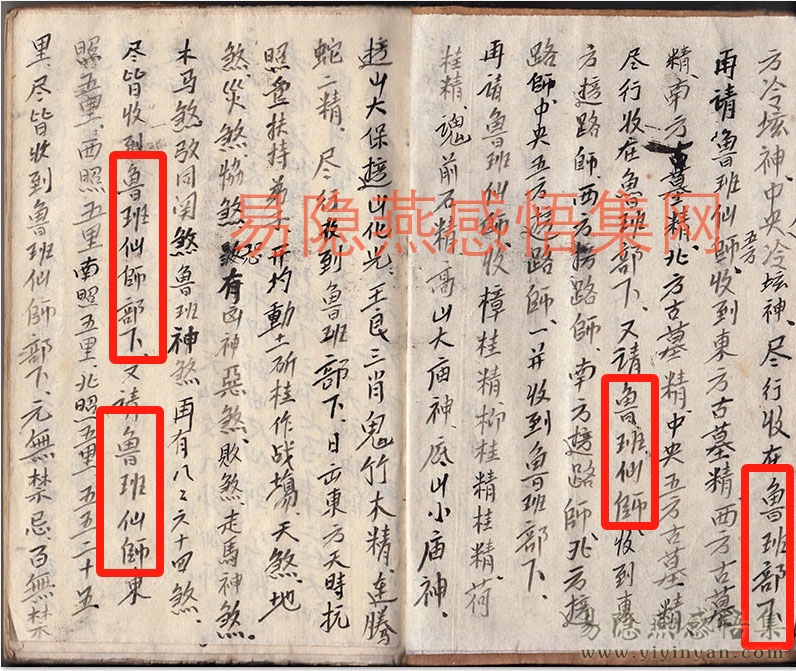 方冷坛神、中央冷坛神、尽行收在魯班部下
再請魯班仙師、收到東方古墓精、西方古墓
五方
精、南方古墓精、北方古墓精、中央五方古墓精
尽行收在魯班部下、又請魯班仙師、收到東
方遊路師、西方遊路師、南方遊路師、北方遊
路師、中央五方遊路師、一并收到魯班部下、
再請魯班仙師、收樟桂精、柳桂精、桂精、荷
桂精、魂前石精、高山大庙神、底山小庙神、
遊山大保、遊山化光、王良三肖鬼、竹木精、連騰
蛇二精、尽行收到魯班部下、日出東方天時抗
照、壹扶持弟子、開均動土斫桂作战場、天煞、地
煞、災煞、恊煞、有凶神惡煞、敗煞、走馬神煞、
木马煞、同閑煞、魯班神煞、再有八八六十四煞、
尽皆收到魯班仙師部下、又請魯班仙師東
照五里、西照五里、南照五里、北照五里、五五二十五
里、尽皆收到魯班仙師部下、元無禁忌、百無禁
易隐燕感悟集网
易隐燕感悟集
www.yiyinyan.com